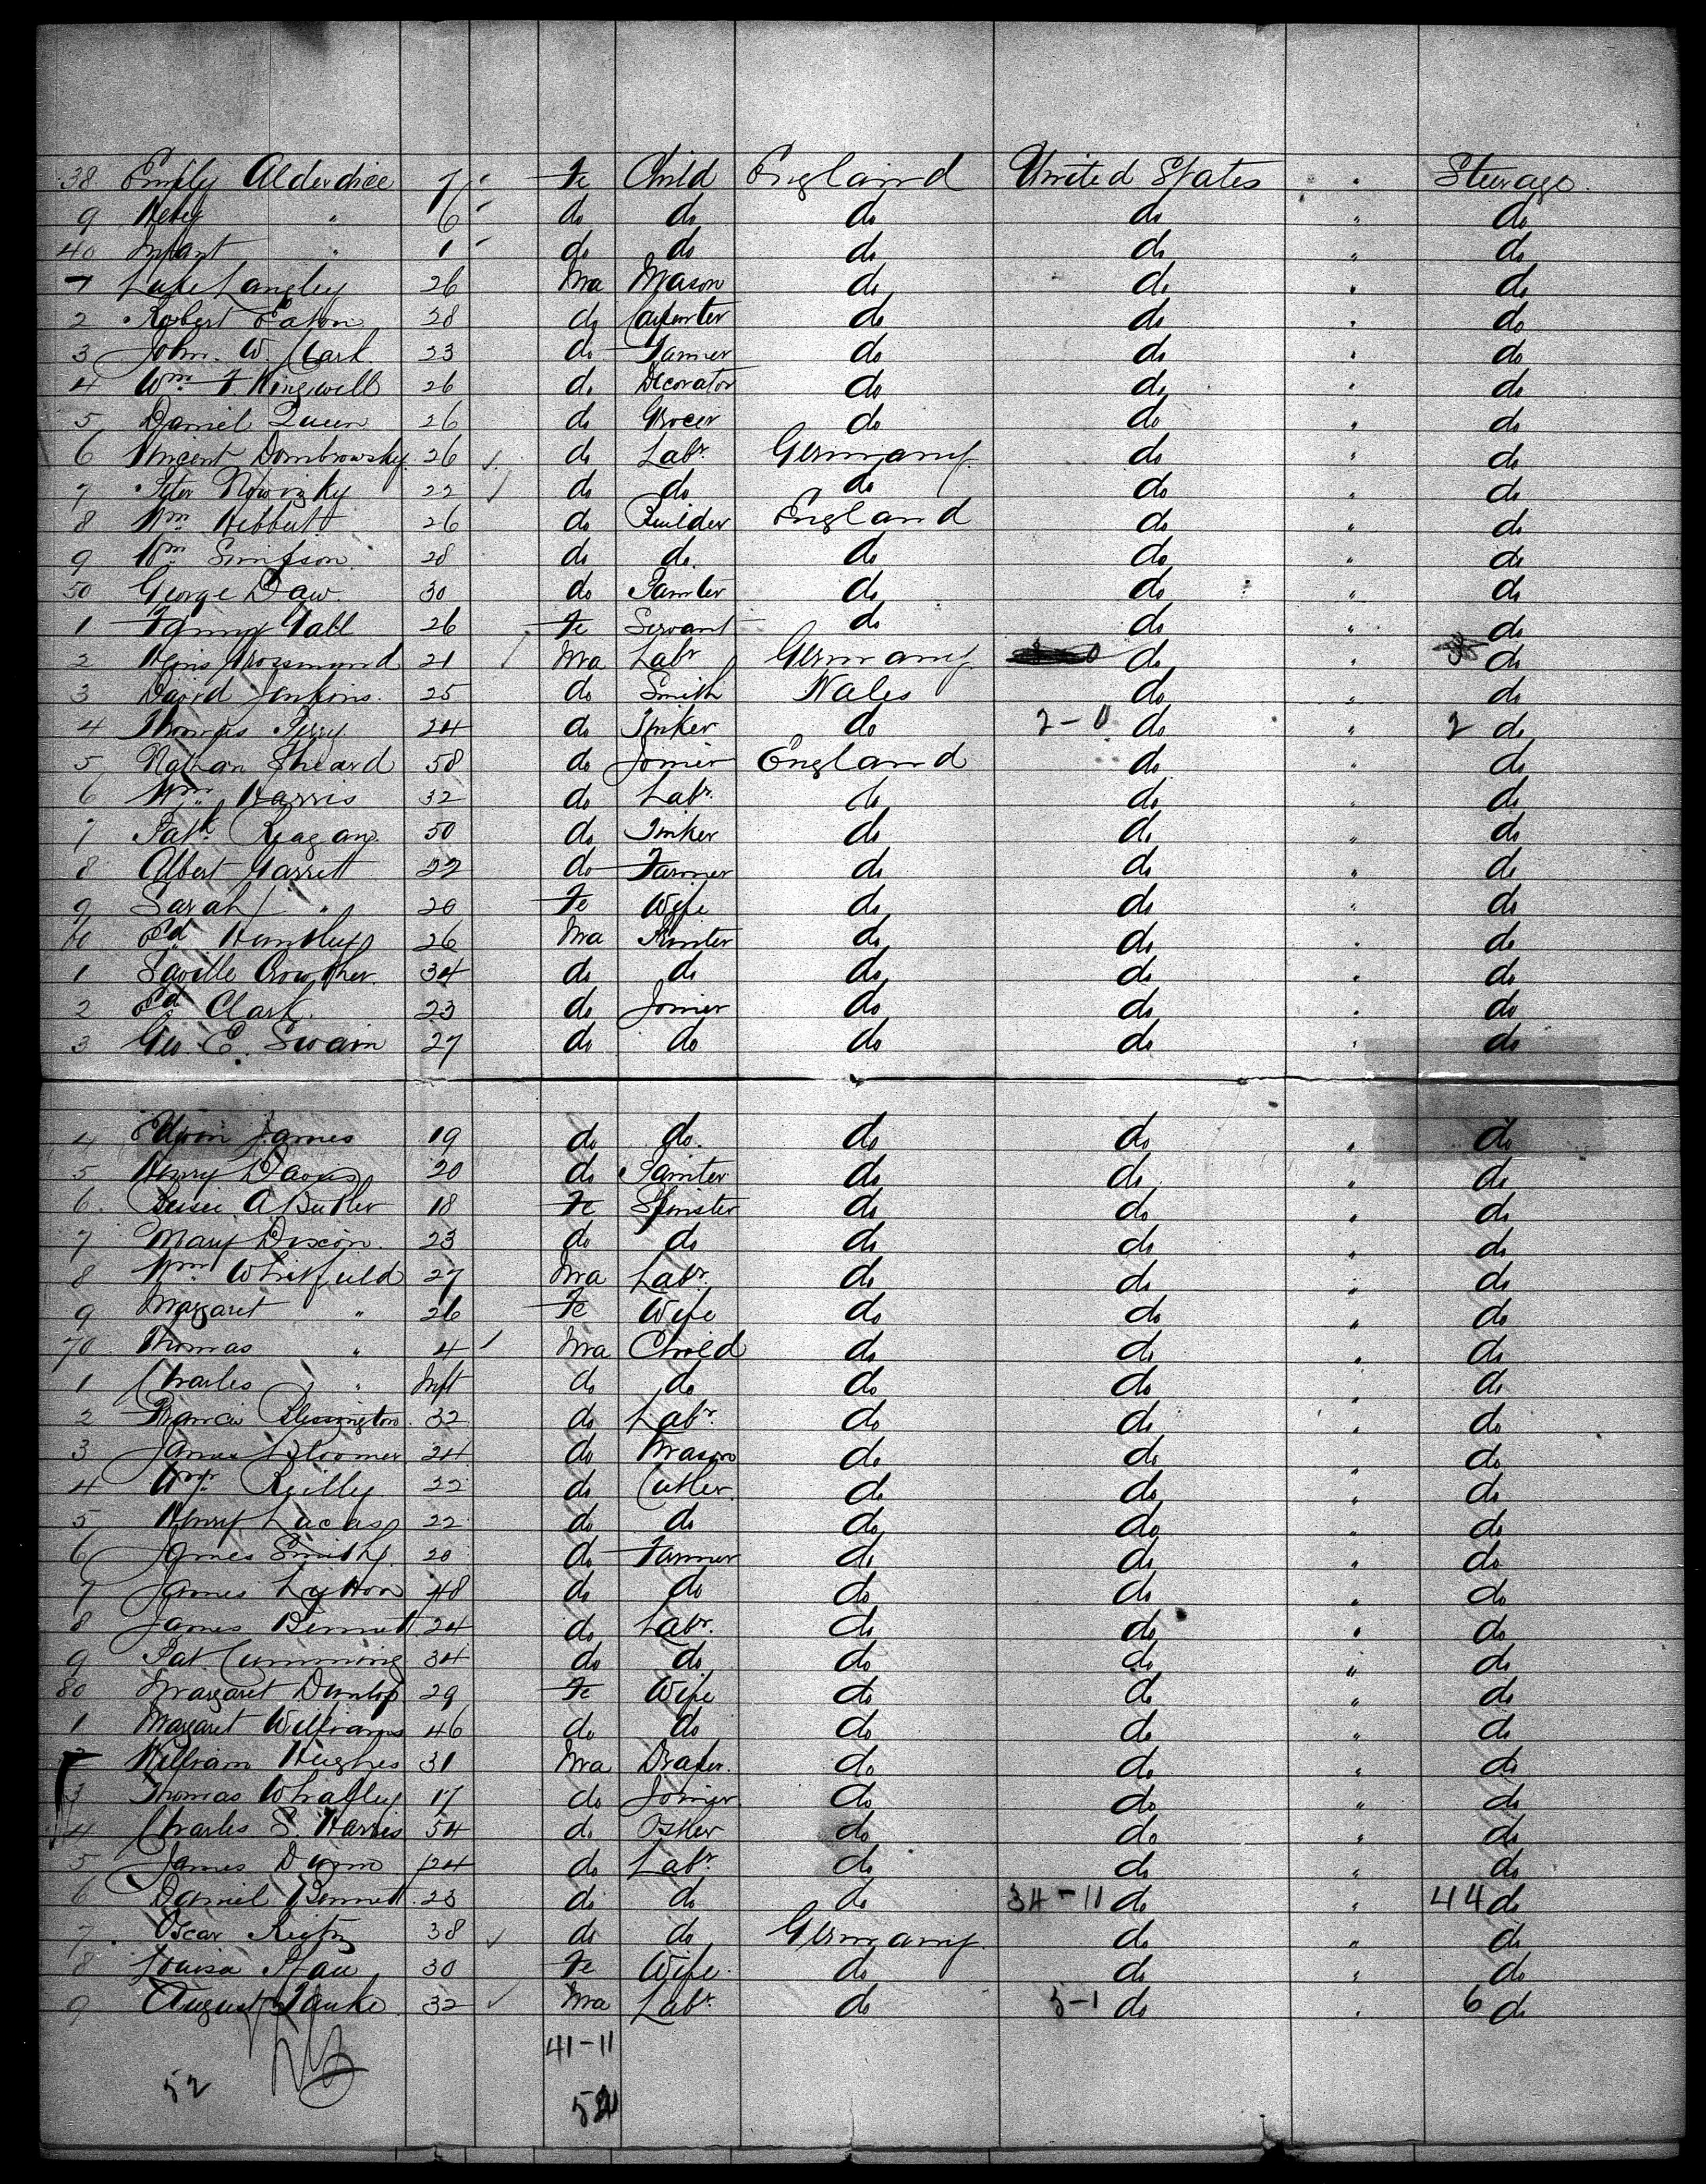 38 Emily Alderdice 7 Fe Child England United States " Steerage
9 " 6 do do do do " do
40 Infant " 1 do do do do " do
Luke Langley 26 Ma Mason do do " do
2 Robert Eaton 28 do Carpenter do do " do
3 John. W. Clark 23 do Farmer do do " do
4 Wm F. Kingwell 26 do Decorator do do " do
5 Daniel Queen 26 do Grocer do do " do
6 Vincent Dombrowsky 26 do Labr. Germany do " do
7 Peter 22 do do do do " do
8 Wm Hibbert 26 do Builder England do " do
9 Wm Simpson 28 do do do do " do
50 George Daw 30 do Painter do do " do
1 Fanny Gall 26 Fe Servant do do " do
2 21 Ma Labr Germany do " do
3 David Jenkins 25 do Smith Wales do " do
4 Thomas Perry 24 do Tinker do 2-0 do " 2 do
5 Nathan Sheard 58 do Joiner England do " do
6 Wm Harris 32 do Labr. do do " do
7 Patk Reagan 50 do Tinker do do " do
8 Albert Garrett 22 do Farmer do do " do
9 Sarah " 20 Fe Wife do do " do
60 Ed Huntley 26 Ma do do " do
1 Saville Crowther 34 do do do do " do
2 Ed Clark 23 do Joiner do do " do
3 Geo. E. Swain 27 do do do do " do
4 James 19 do do. do do " do
5 Henry Davis 20 do Painter do do " do
6 A Butler 18 Fe Spinster do do " do
7 Mary Dixon 23 do do do do " do
8 Wm Whitfield 27 Ma Labr. do do " do
9 Margaret " 26 Fe Wife do do " do
70 Thomas " 4 Ma Child do do " do
1 Charles " Inft do do do do " do
2 Francis Blessington 32 do Labr. do do " do
3 James Bloomer 24 do Mason do do " do
4 Wm Reilly 22 do Cutler do do " do
5 Henry Lucas 22 do do do do " do
6 James Smith 20 do Farmer do do " do
7 James Lytton 48 do do do do " do
8 James Bennett 24 do Labr. do do " do
9 Pat Cumming 34 do do do do " do
80 Margaret Dunlop 29 Fe Wife do do " do
1 Margaret Williams 46 do do do do " do
2 William Hughes 31 Ma Draper do do " do
3 Thomas Whatley 17 do Joiner do do " do
4 Charles S. Harris 54 do Ostler do do " do
5 James Dunn 24 do Labr. do do " do
6 Daniel Bennett 23 do do do 34-11 do " 44 do
7 Oscar 38 do do Germany do " do
8 Louisa 30 Fe Wife do do " do
9 August 32 Ma Labr. do 5-1 do " 6 do
41-11
52